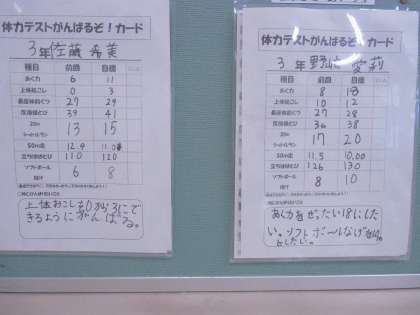 体力テストがんばるぞ！カード
3年佐藤 秀美
種目 前回 目標
あく力 6 11
上体起こし 0 3
長座体前くつ 27 29
反復横とび 39 41
20m シャトルラン 13 15
50m走 12.9 11.0
立ちはばとび 110 120
ソフトボール投げ 6 8
上体おこしも0から3にで
きるようにがんばる。
体力テストがんばるぞ！カード
3年 愛莉
種目 前回 目標
あく力 8 18
上体起こし 10 12
長座体前くつ 27 28
反復横とび 36 38
20m シャトルラン 17 20
50m走 11.5 10.00
立ちはばとび 126 130
ソフトボール投げ 8 10
あく力をぜったい18にした
い。ソフトボールなげを10
にしたい。